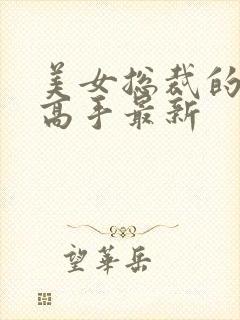 美女总裁的
高手最新
望華岳